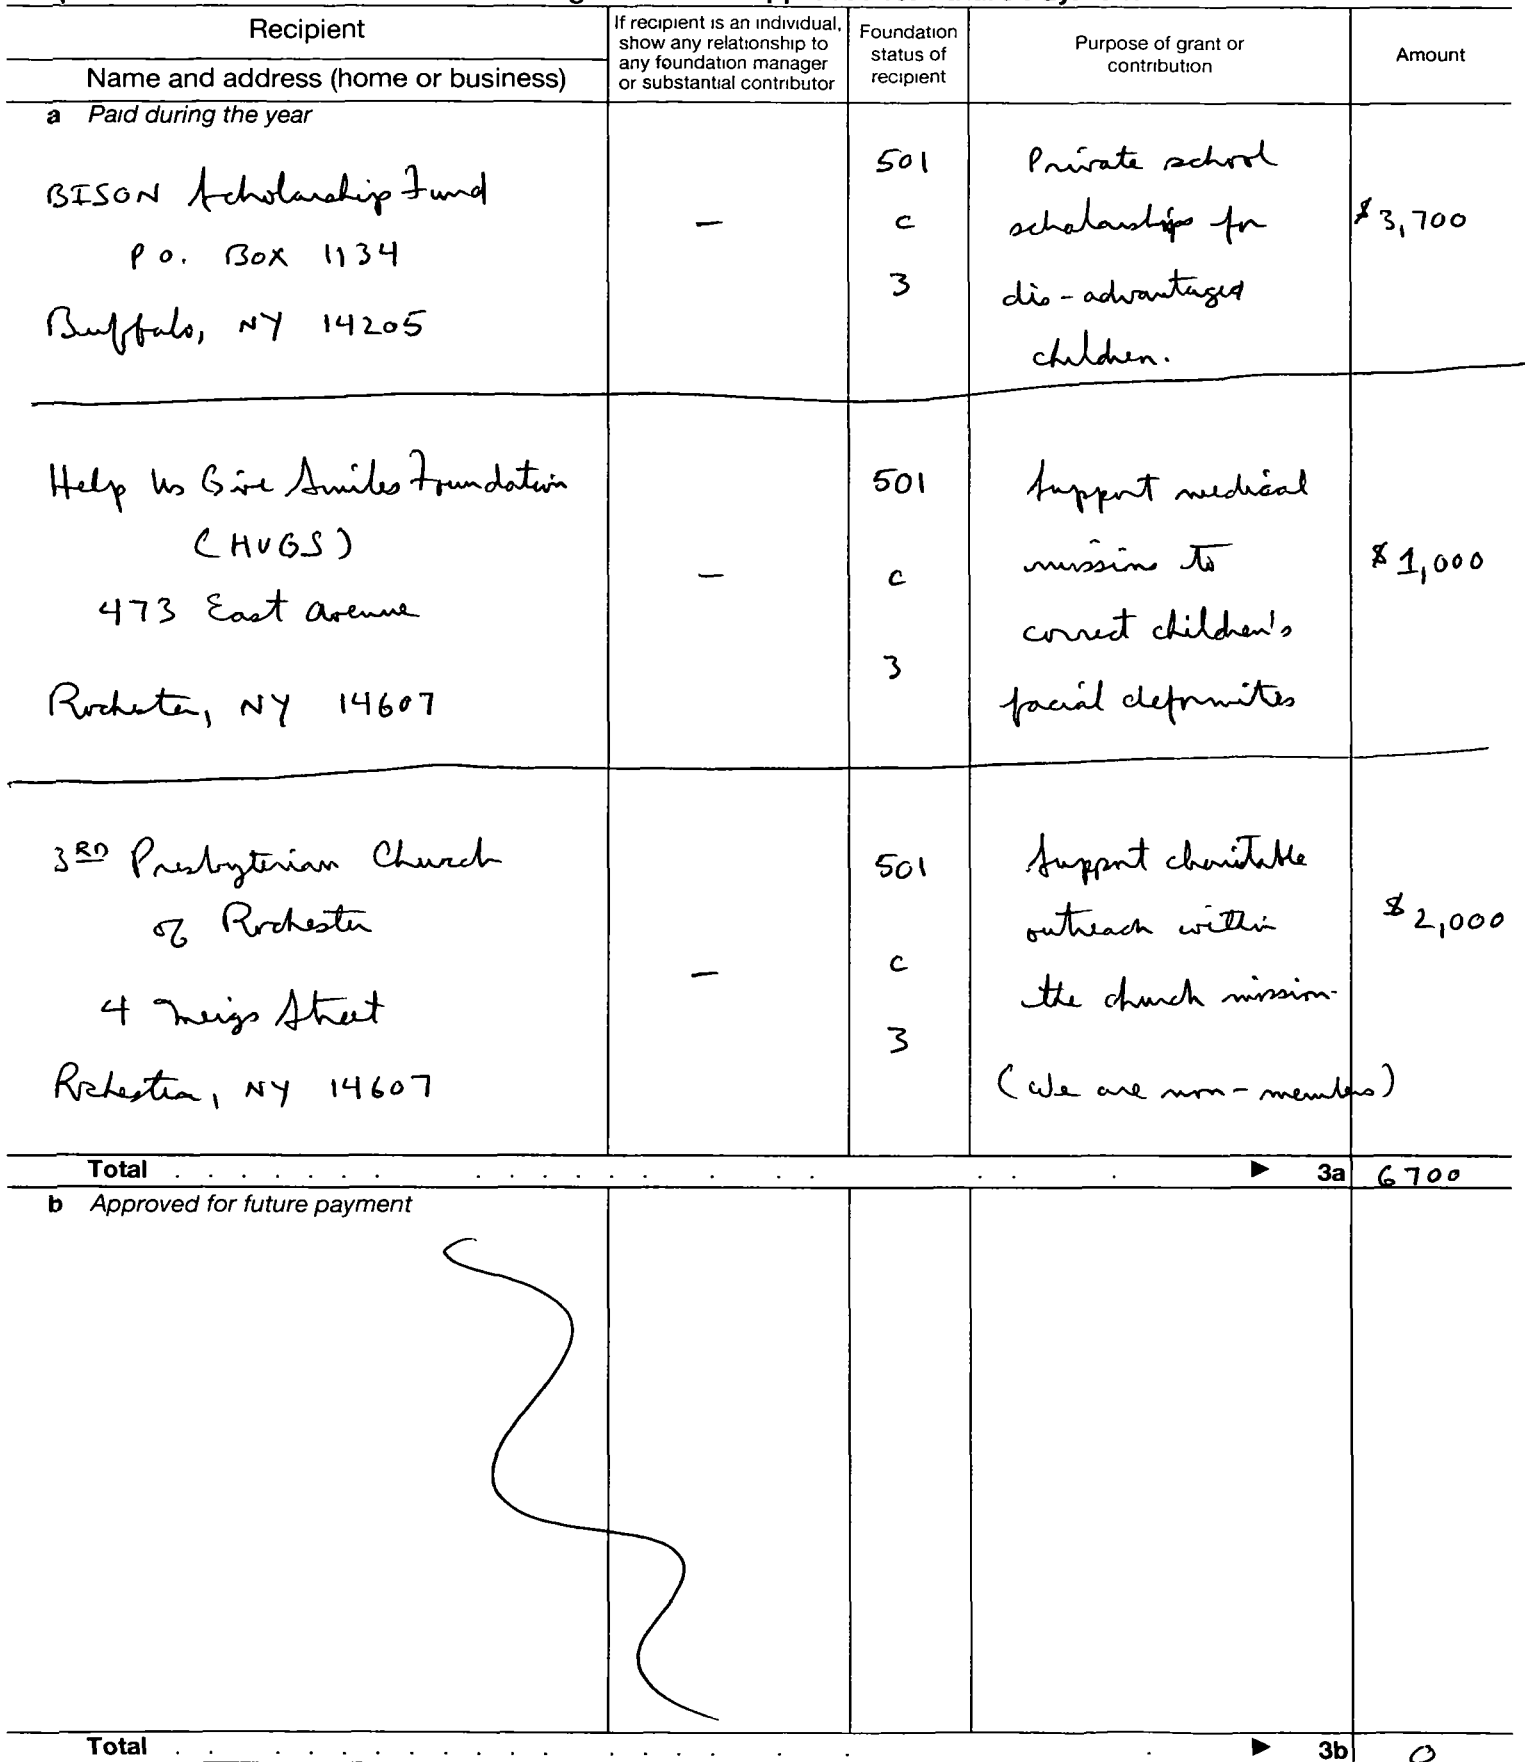 Recipient
Name and address (home or business)
If recipient is an individual,
show any relationship to
any foundation manager
or substantial contributor
Foundation
status of
recipient
Purpose of grant or
contribution
Amount
a Paid during the year
BISON Scholarship Fund
P.O. Box 1134
Buffalo, NY 14205
—
501
c
3
Private school
scholarships for
dis-advantaged
children.
$3,700
Help Us Give Smiles Foundation
(HUGS)
473 East Avenue
Rochester, NY 14607
—
501
c
3
Support medical
missions to
correct children's
facial deformites
$1,000
3RD Presbyterian Church
of Rochester
4 Meigs Street
Rochester, NY 14607
—
501
c
3
Support charitable
outreach within
the church mission.
(We are non-members)
$2,000
Total 3a 6700
b Approved for future payment
Total 3b 0